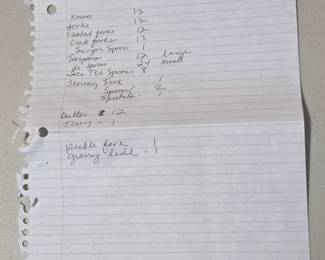 Knives 12
forks 12
Salad forks 12
Crab forks 12
Sugar Spoon 1
Teaspoons 12 large
24 small
Ice Tea Spoons 8
Serving Fork 1
Spoon 2
1
Butter 12
- 1
pickle fork 1
gravy ladel - 1